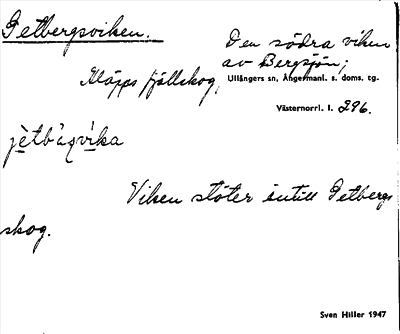 Getbergsviken.
Den södra viken
av Bergsjön;
Kläpps fjällskog,
Ullångers sn, Ångermanl. s. doms. tg.
Västernorrl. l. 296.
jètb'àqvi̱ka
Viken stöter intill Getbergs
skog.
Sven Hiller 1947